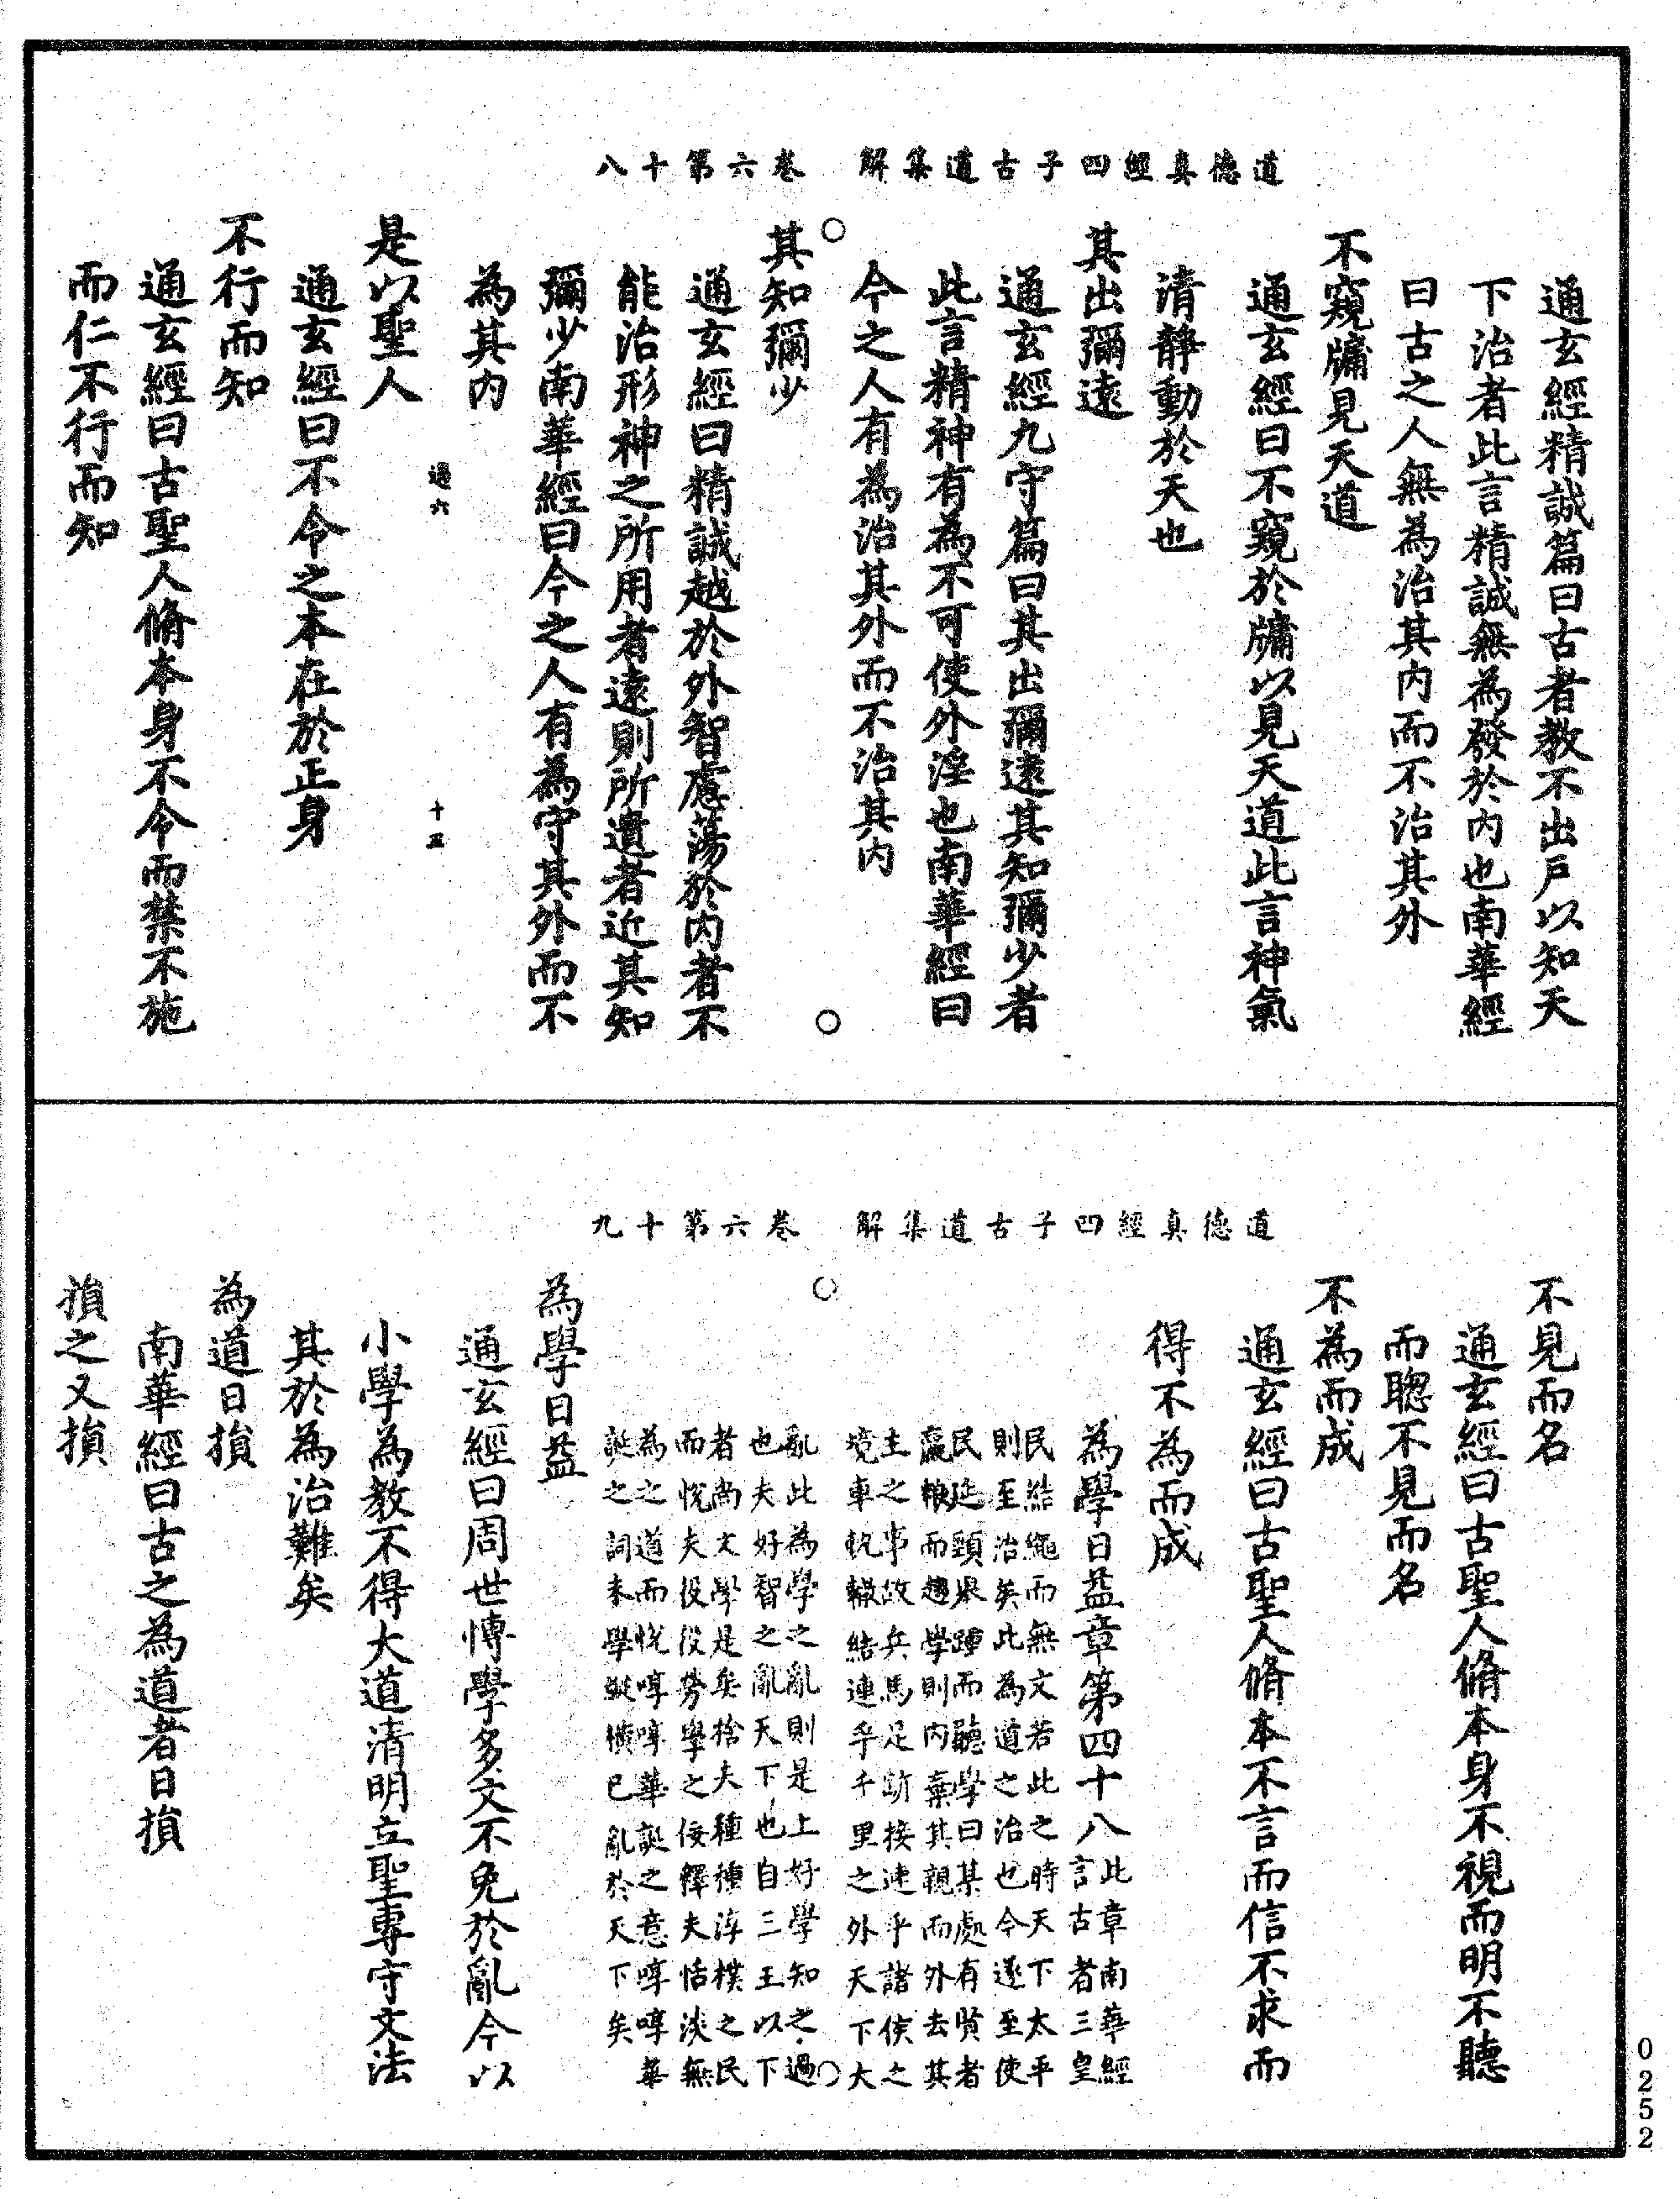 道德真經四子古道集解　卷六第十八
通玄經精誠篇曰古者教不出戶以知天
下治者此言精誠無為發於內也南華經
曰古之人無為治其內而不治其外
不窺牖見天道
通玄經曰不窺於牖以見天道此言神氣
清靜動於天也
其出彌遠
通玄經九守篇曰其出彌遠其知彌少者
此言精神有為不可使外淫也南華經曰
今之人有為治其外而不治其內
其知彌少
通玄經曰精誠越於外智慮蕩於內者不
能治形神之所用者遠則所遺者近其知
彌少南華經曰今之人有為守其外而不
為其內
過六　十五
是以聖人
通玄經曰不令之本在於正身
不行而知
通玄經曰古聖人脩本身不令而禁不施
而仁不行而知
道德真經四子古道集解　卷六第十九
不見而名
通玄經曰古聖人脩本身不視而明不聽
而聰不見而名
不為而成
通玄經曰古聖人脩本不言而信不求而
得不為而成
為學日益章第四十八
此章南華經
言古者三皇
民結繩而無文若此之時天下太平
則至治矣此為道之治也今遂至使
民延頸舉踵而聽學曰某處有賢者
贏糧而趨學則內棄其親而外去其
主之事故兵馬足跡接迹乎諸侯之
境車軌轍結連乎千里之外天下大
亂此為學之亂則是上好學知之過
也夫好智之亂天下也自三王以下
者尚文學是矣捨夫種種淳樸之民
而悅夫役役勞學之佞釋夫恬淡無
為之道而悅啍啍華誕之意啍啍華
誕之詞未學縱橫已亂於天下矣
為學日益
通玄經曰周世博學多文不免於亂今以
小學為教不得大道清明立聖專守文法
其於為治難矣
為道日損
南華經曰古之為道者日損
損之又損
0252